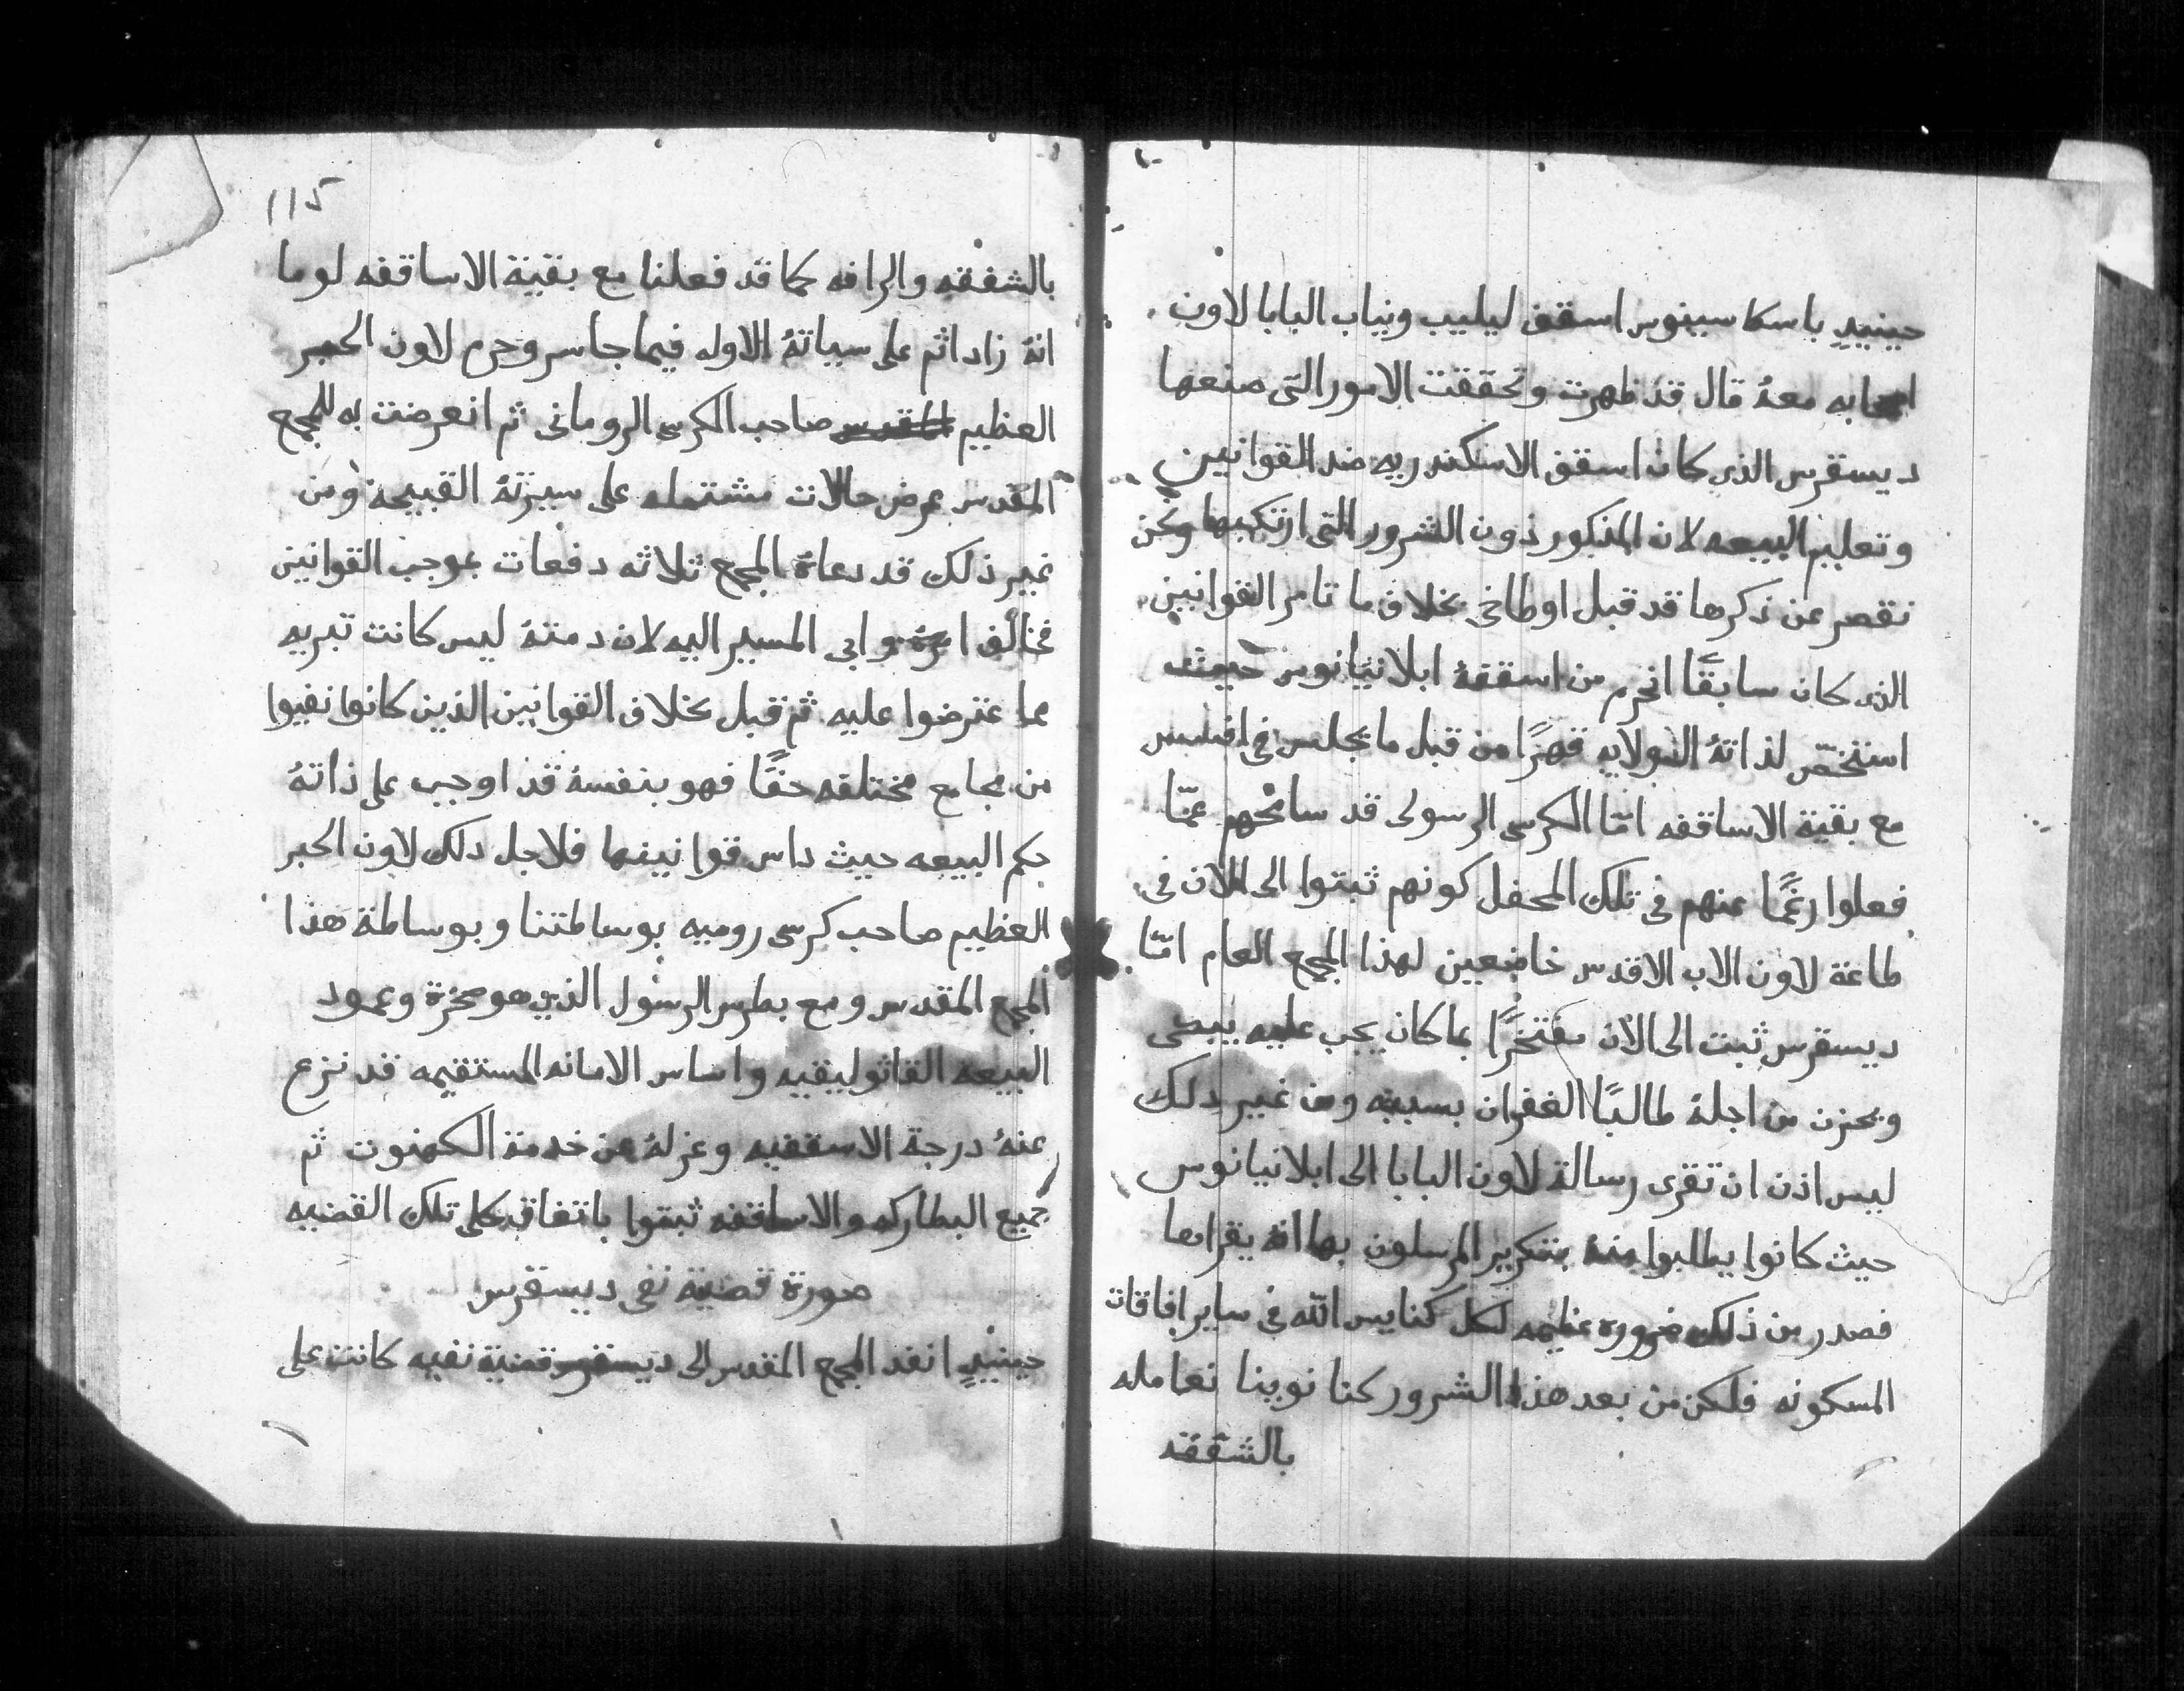 حينييدٍ باسكاسينوس اسقف ليليب ونياب البابا لاون
اصحابه معهُ قال قد ظهرت وتحققت الامور التى صنعها
ديسقرس الذى كان اسقف الاسكندريه ضد القوانين
وتعليم البيعه لان المذكور دون الشرور التى ارتكبها ونحن
نقصر عن ذكرها قد قبل اوطاخى بخلاف ما تامر القوانين
الذى كان سابقًا انحرم من اسقفهُ ابلانيانوس حيث
استخصّ لذاتهُ الولايه قهرًا من قبل ما يجلس فى افسس
مع بقية الاساقفه امّا الكرسى الرسولى قد سامحهم عمّا
فعلوا رغمًا عنهم فى تلك المحفل كونهم ثبتوا الى الان فى
طاعة لاون الاب الاقدس خاضعين لهذا المجمع العام امّا
ديسقرس ثبت الى الان مفتخرًا بما كان يجب عليه يبكى
ويحزن من اجلهُ طالبًا الغفران بسببه ومن غير دلك
ليس اذن ان تقرى رسالة لاون البابا الى ابلانيانوس
حيث كانوا يطلبوا منهُ بتكرير المرسلون بها انهُ يقراها
فصدر من ذلك ضروره عظيمه لكل كنايس الله فى ساير افاقات
المسكونه فلكن من بعد هذا الشرور كنا نوينا نعامله
بالشفقه
115
بالشفقه والرافه كما قد فعلنا مع بقية الاساقفه لو ما
انهُ زاد اثم على سياتهُ الاوله فيما جاسر وحرم لاون الحبر
العظيم صاحب الكرسى الرومانى ثم انعرضت به للمجمع
المقدس عرض حالات مشتمله على سيرتهُ القبيحة ومن
غير ذلك قد دعاهُ المجمع ثلاثه دفعات بموجب القوانين
فخالف امرهُ وابى المسير اليه لان دمتهُ ليس كانت تبريه
مما عترضوا عليه ثم قبل بخلاف القوانين الذين كانوا نفيوا
من مجامع مختلفه حقًا فهو بنفسهُ قد اوجب على ذاتهُ
حكم البيعه حيث داس قوانينها فلاجل دلك لاون الحبر
العظيم صاحب كرسى روميه بوساطتنا وبوساطة هذا
المجمع المقدس ومع بطرس الرسول الذى هو صخرة وعمود
البيعه القاثوليقيه واساس الامانه المستقيمه قد نزع
عنهُ درجة الاسقفيه وعزلهُ من خدمة الكهنوت ثم
جميع البطاركه والاساقفه ثبتوا باتفاق كلى تلك القضيه
صورة قضية نفى ديسقرس
حينيدٍ انفد المجمع المقدس الى ديسقرس قضية نفيه كانت على